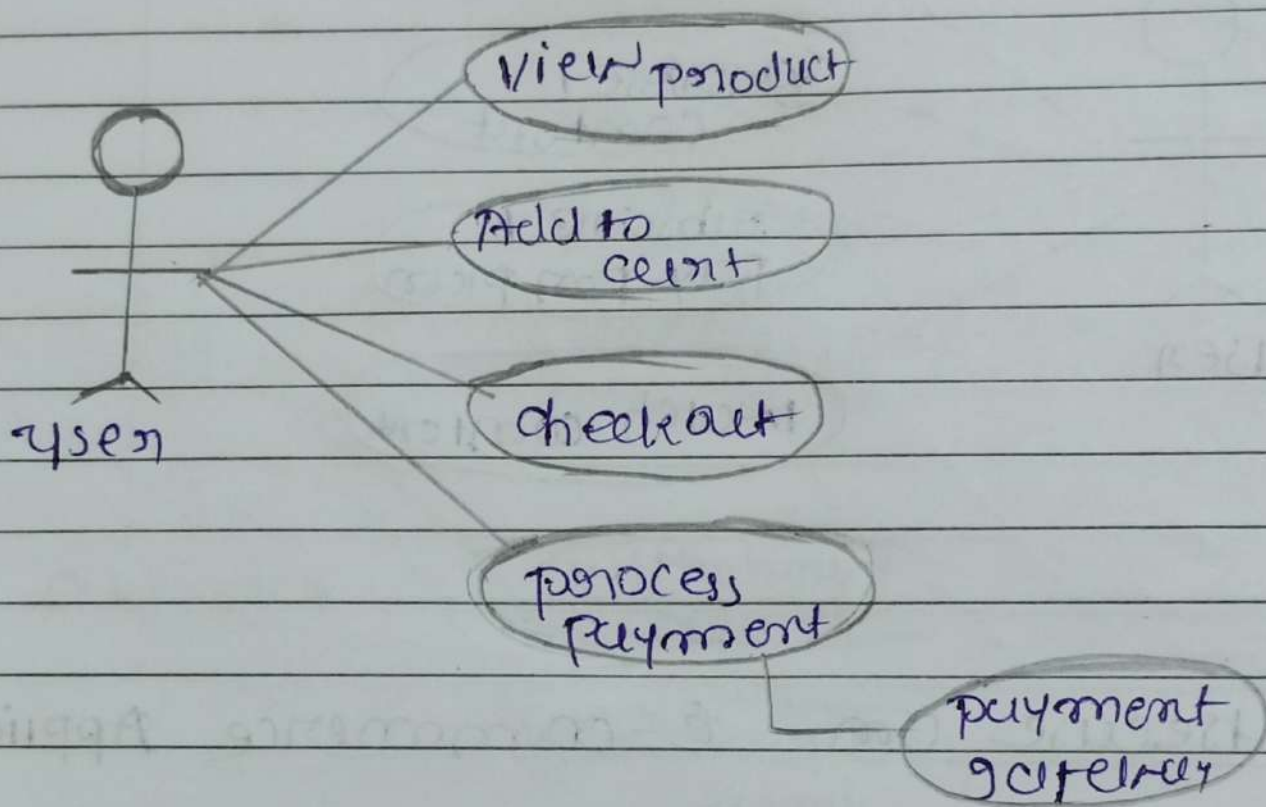 View product
Add to
cart
checkout
user
process
payment
payment
gateway